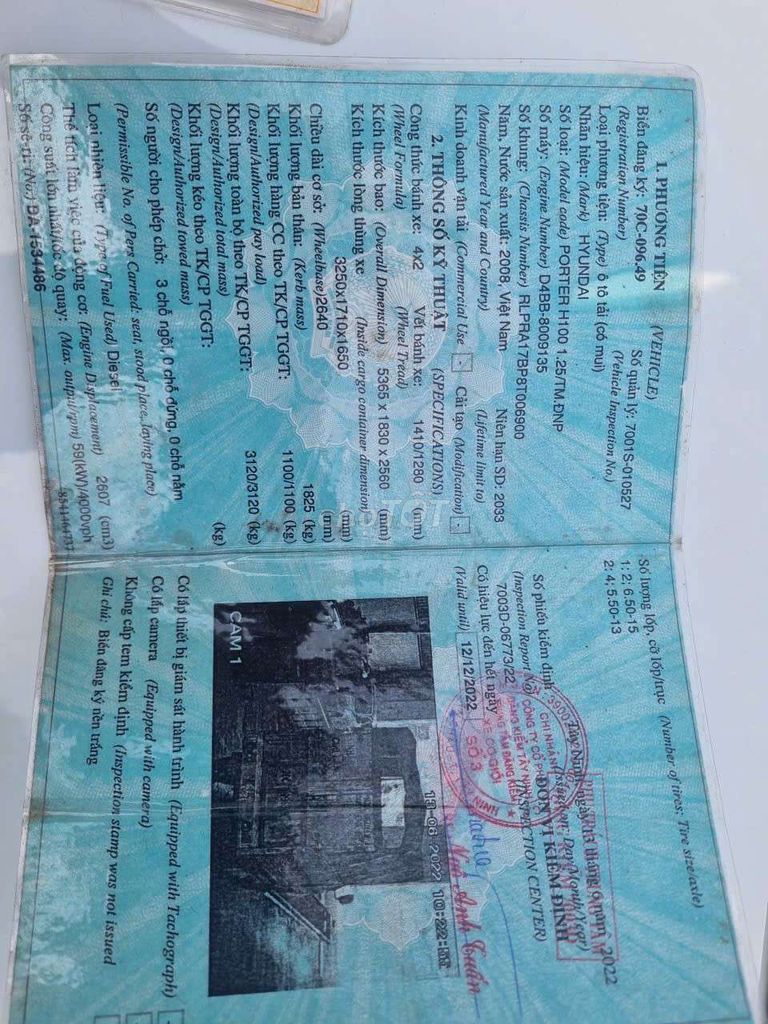 1. PHƯƠNG TIỆN (VEHICLE)
Biển đăng ký: 70C-096.49 Số quản lý: 7001S-010527
(Registration Number) (Vehicle Inspection No.)
Loại phương tiện: (Type) ô tô tải (có mui)
Nhãn hiệu: (Mark) HYUNDAI
Số loại: (Model code) PORTER H100 1.25/TM.ĐNP
Số máy: (Engine Number) D4BB-8009135
Số khung: (Chassis Number) RLPRA17BP8T006900
Năm, Nước sản xuất: 2008, Việt Nam Niên hạn SD: 2033
(Manufactured Year and Country) (Lifetime limit to)
Kinh doanh vận tải (Commercial Use) Cải tạo (Modification)
2. THÔNG SỐ KỸ THUẬT (SPECIFICATIONS)
Công thức bánh xe: 4x2 Vết bánh xe: 1410/1280 (mm)
(Wheel Formula) (Wheel Tread)
Kích thước bao: (Overall Dimension) 5365 x 1830 x 2560 (mm)
Kích thước lòng thùng xe (Inside cargo container dimension)
3250x1710x1650 (mm)
Chiều dài cơ sở: (Wheelbase) 2640 (mm)
Khối lượng bản thân: (Kerb mass) 1825 (kg)
Khối lượng hàng CC theo TK/CP TGGT: 1100/1100 (kg)
(Design/Authorized pay load)
Khối lượng toàn bộ theo TK/CP TGGT: 3120/3120 (kg)
(Design/Authorized total mass)
Khối lượng kéo theo TK/CP TGGT: (kg)
(Design/Authorized towed mass)
Số người cho phép chở: 3 chỗ ngồi, 0 chỗ đứng, 0 chỗ nằm
(Permissible No. of Pers Carried: seat, stood place, laying place)
Loại nhiên liệu: (Type of Fuel Used) Diesel
Thể tích làm việc của động cơ: (Engine Displacement) 2607 (cm3)
Công suất lớn nhất/tốc độ quay: (Max. output/rpm) 59(kW)/4000vph
Số sê-ri: (No.) DA-1534496
Số lượng lốp, cỡ lốp/trục (Number of tires; Tire size/axle)
1: 2; 6.50-15
2: 4; 5.50-13
2022
ĐƠN VỊ KIỂM ĐỊNH
Số phiếu kiểm định
(Inspection Report No)
7003D-06773/22
Có hiệu lực đến hết ngày
(Valid until) 12/12/2022
CÔNG TY CỔ PH
CHI NHÁNH
ĐĂNG KIỂM TÂY NINH
TRUNG TÂM ĐĂNG KIỂM
XE CƠ GIỚI
SỐ 3
Anh Tuấn
13-06 2022 10:22
CAM 1
Có lắp thiết bị giám sát hành trình (Equipped with Tachograph)
Có lắp camera (Equipped with camera)
Không cấp tem kiểm định (Inspection stamp was not issued
Ghi chú: Biển đăng ký nền trắng